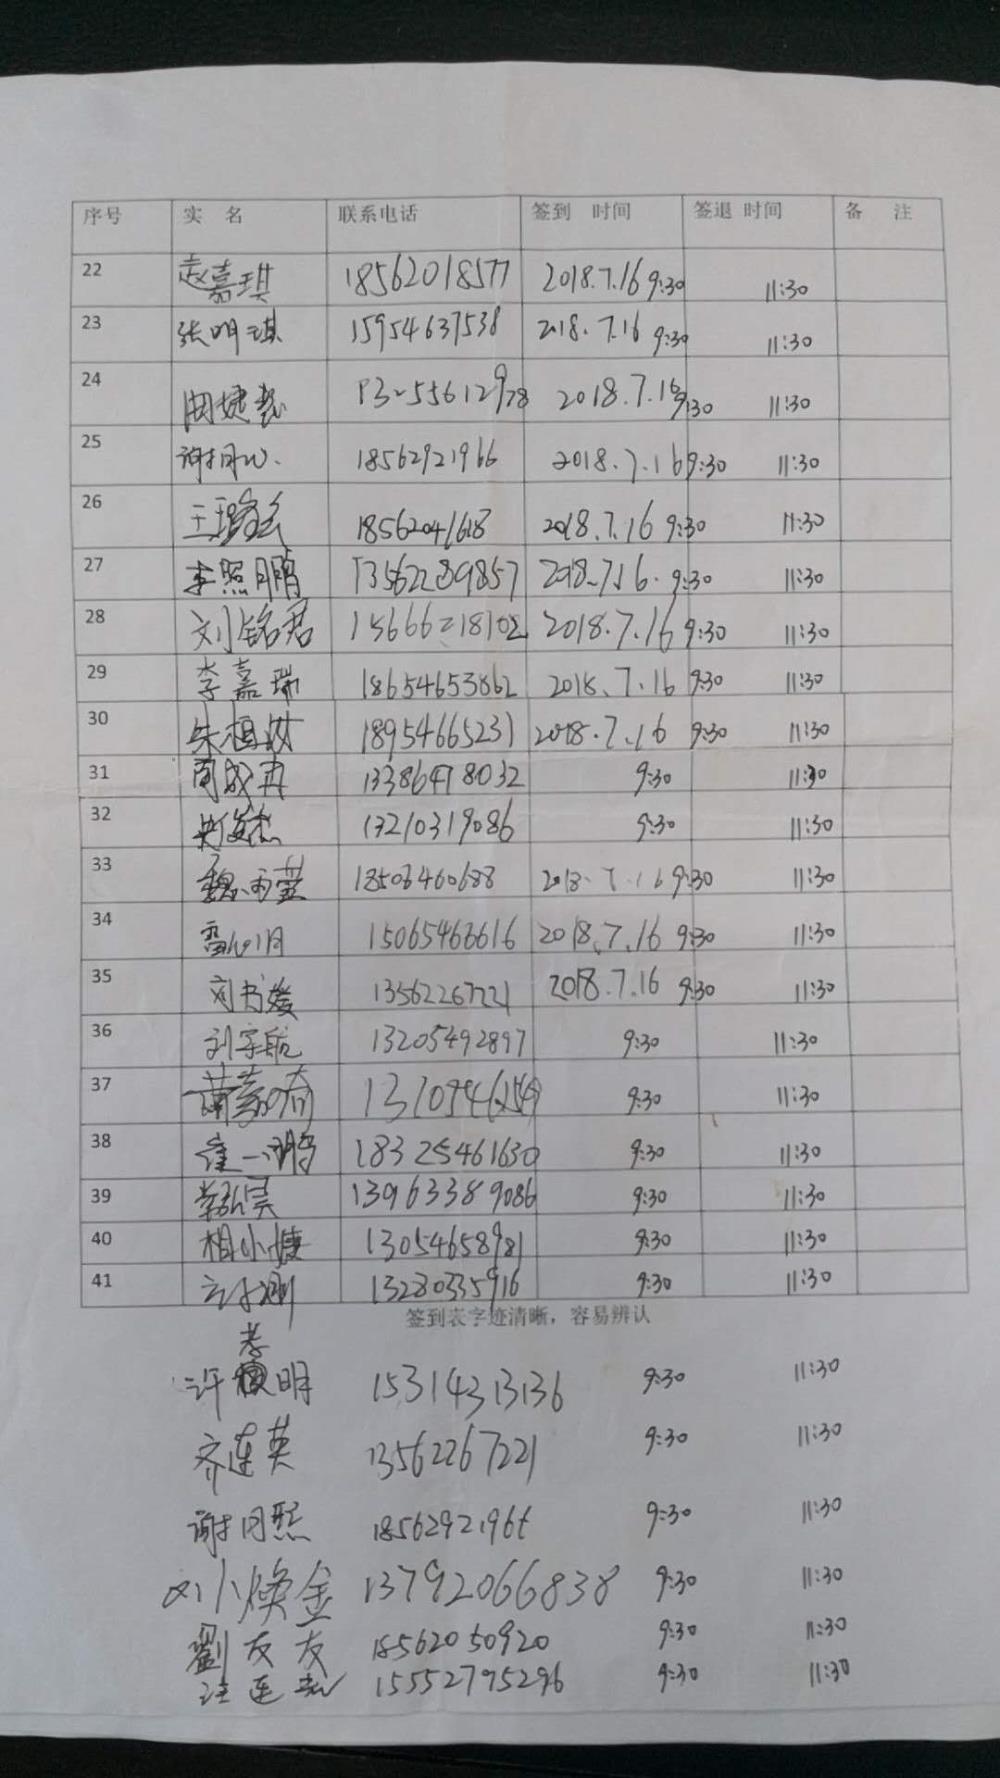 序号 实 名 联系电话 签到 时间 签退 时间 备 注
22 赵嘉琪 18562018577 2018.7.16 9:30 11:30
23 张明琪 15954637538 2018.7.16 9:30 11:30
24 周婕 2018.7.16 9:30 11:30
25 谢 18562921966 2018.7.16 9:30 11:30
26 王 18562041618 2018.7.16 9:30 11:30
27 李照鹏 13562289857 2018.7.16. 9:30 11:30
28 刘铭君 15666218102 2018.7.16 9:30 11:30
29 李嘉瑞 18654653862 2018.7.16 9:30 11:30
30 朱 18954665231 2018.7.16 9:30 11:30
31 周成冉 13386478032 9:30 11:30
32 13210319086 9:30 11:30
33 魏雨萱 18503460688 2018.7.16 9:30 11:30
34 15065463616 2018.7.16 9:30 11:30
35 刘书媛 13562267221 2018.7.16 9:30 11:30
36 刘宇航 13205492897 9:30 11:30
37 9:30 11:30
38 崔一鹏 18325461630 9:30 11:30
39 李弘昊 13963389086 9:30 11:30
40 相小婕 13054658981 9:30 11:30
41 13280335916 9:30 11:30
签到表字迹清晰，容易辨认
许孝明 15314313136 9:30 11:30
齐连英 13562267221 9:30 11:30
谢月熙 9:30 11:30
刘小焕金 13792066838 9:30 11:30
劉友友 18562050920 9:30 11:30
15552795296 9:30 11:30